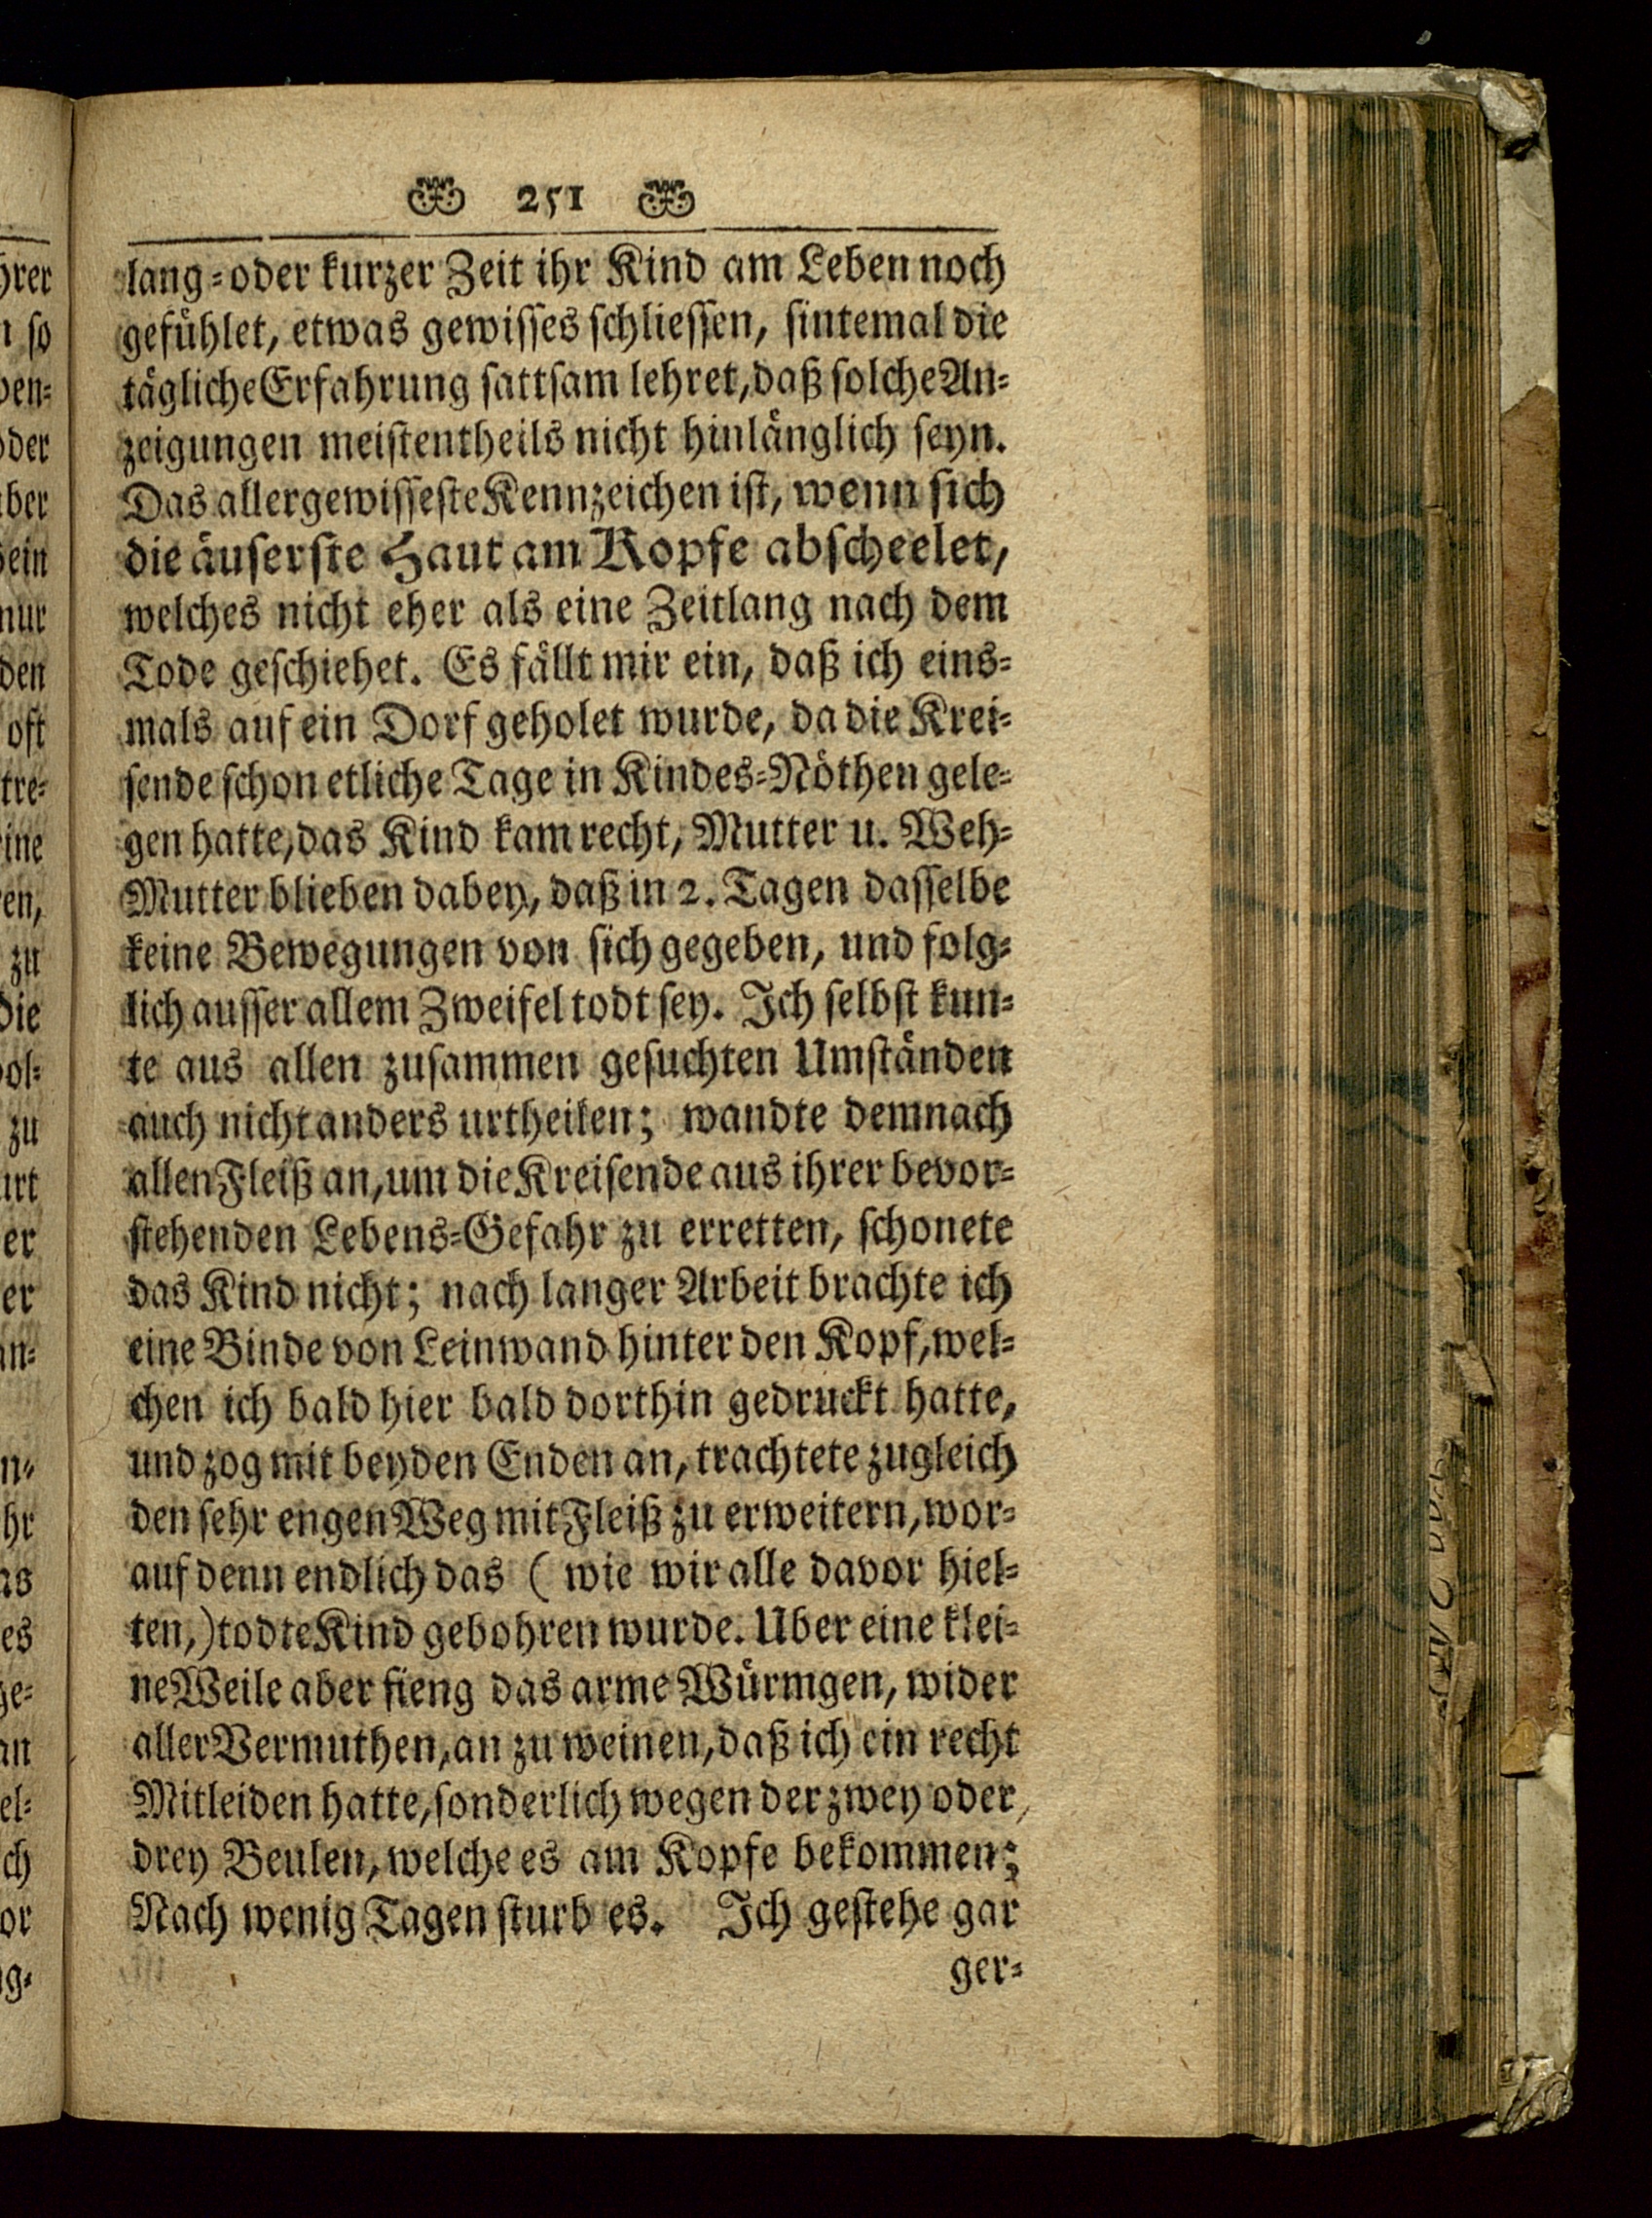 251
lang-oder kurzer Zeit ihr Kind am Leben noch
gefühlet, etwas gewisses schliessen, sintemal die
tägliche Erfahrung sattsam lehret, daß solche An-
zeigungen meistentheils nicht hinlänglich seyn.
Das allergewisseste Kennzeichen ist, wenn sich
die äuserste Haut am Kopfe abscheelet,
welches nicht eher als eine Zeitlang nach dem
Tode geschiehet. Es fällt mir ein, daß ich eins-
mals auf ein Dorf geholet wurde, da die Krei-
sende schon etliche Tage in Kindes-Nöthen gele-
gen hatte, das Kind kam recht, Mutter u. Weh-
Mutter blieben dabey, daß in 2. Tagen dasselbe
keine Bewegungen von sich gegeben, und folg-
lich ausser allem Zweifel todt sey. Ich selbst kun-
te aus allen zusammen gesuchten Umständen
auch nicht anders urtheilen; wandte demnach
allen Fleiß an, um die Kreisende aus ihrer bevor-
stehenden Lebens-Gefahr zu erretten, schonete
das Kind nicht; nach langer Arbeit brachte ich
eine Binde von Leinwand hinter den Kopf, wel-
chen ich bald hier bald dorthin gedruckt hatte,
und zog mit beyden Enden an, trachtete zugleich
den sehr engen Weg mit Fleiß zu erweitern, wor-
auf denn endlich das ( wie wir alle davor hiel-
ten,) todte Kind gebohren wurde. Uber eine klei-
ne Weile aber fieng das arme Würmgen, wider
aller Vermuthen, an zu weinen, daß ich ein recht
Mitleiden hatte, sonderlich wegen der zwey oder
drey Beulen, welche es am Kopfe bekommen;
Nach wenig Tagen sturb es. Ich gestehe gar
ger-